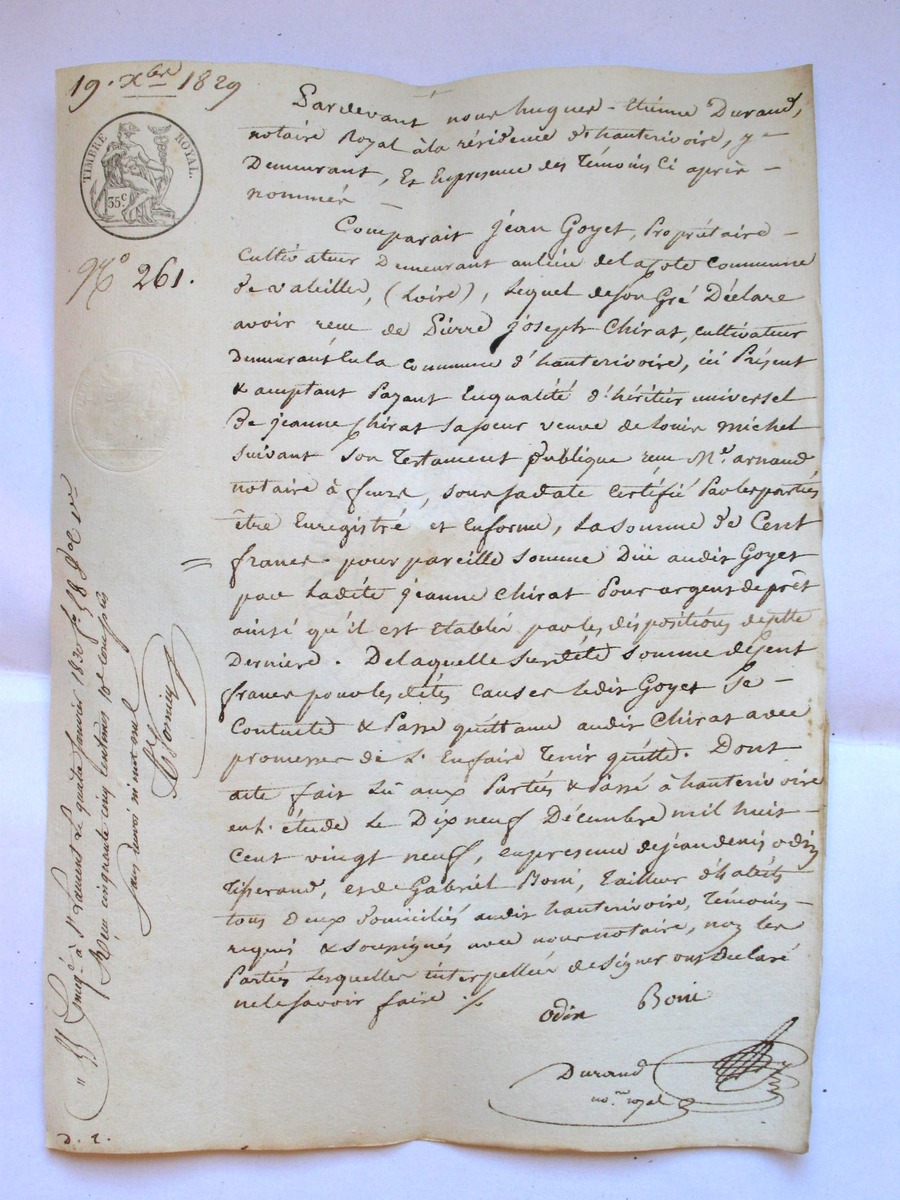 19. Xbre 1829
TIMBRE ROYAL.
35c
No 261.
Pardevant nous hugues-etienne Durand,
notaire Royal à la résidence d'hauterivoire, y
Demeurant, Et En presence des Témoins Ci après
nommés
Comparait jean Goyet, Propriétaire
Cultivateur Demeurant au lieu de la
Commune
de valeille, (Loire), Lequel de son Gré Déclare
avoir recu de Pierre joseph Chirat, cultivateur
demeurant En la commune d'hauterivoire, ici Présent
& acceptant Payant En qualité d'héritier universel
De jeanne Chirat sa soeur veuve de Louis michel
suivant son Testament publique recu Me. arnaud
notaire à feurs, sous sa date Certifié Par les parties
être Enregistré et En forme, La somme de Cent
francs pour pareille somme Düe audit Goyet
par Ladite jeanne Chirat Pour argent de prêt
ainsi qu'il est Etablis par les dispositions de
Derniere. De laquelle susdité somme de Cent
francs pour les dités causes Ledit Goyet se
Contente & Passe quittance audit Chirat avec
promesse de L'En faire Tenir quitte. Dont
acte fait Lû aux Partiés & Passé à hauterivoire
en l'étude Le Dix neuf Décembre mil huit
Cent vingt neuf, en presence de jean denis odin
Tisserand, et de Gabriel Boni, Tailleur d'habits
tous deux domiciliés audit hauterivoire, Témoins
requis & soussignés avec nous notaire, non les
Partiés Lesquelles interpellées de signer ont Declaré
ne le savoir faire ./.
odin Boni
Durand
no.re royal
Enregé à St Laurent Le quatre janvier 1830 fo. 58
Reçu cinquante cinq Centimes 10e compris
sans renvoi ni mot nul
D. 2.